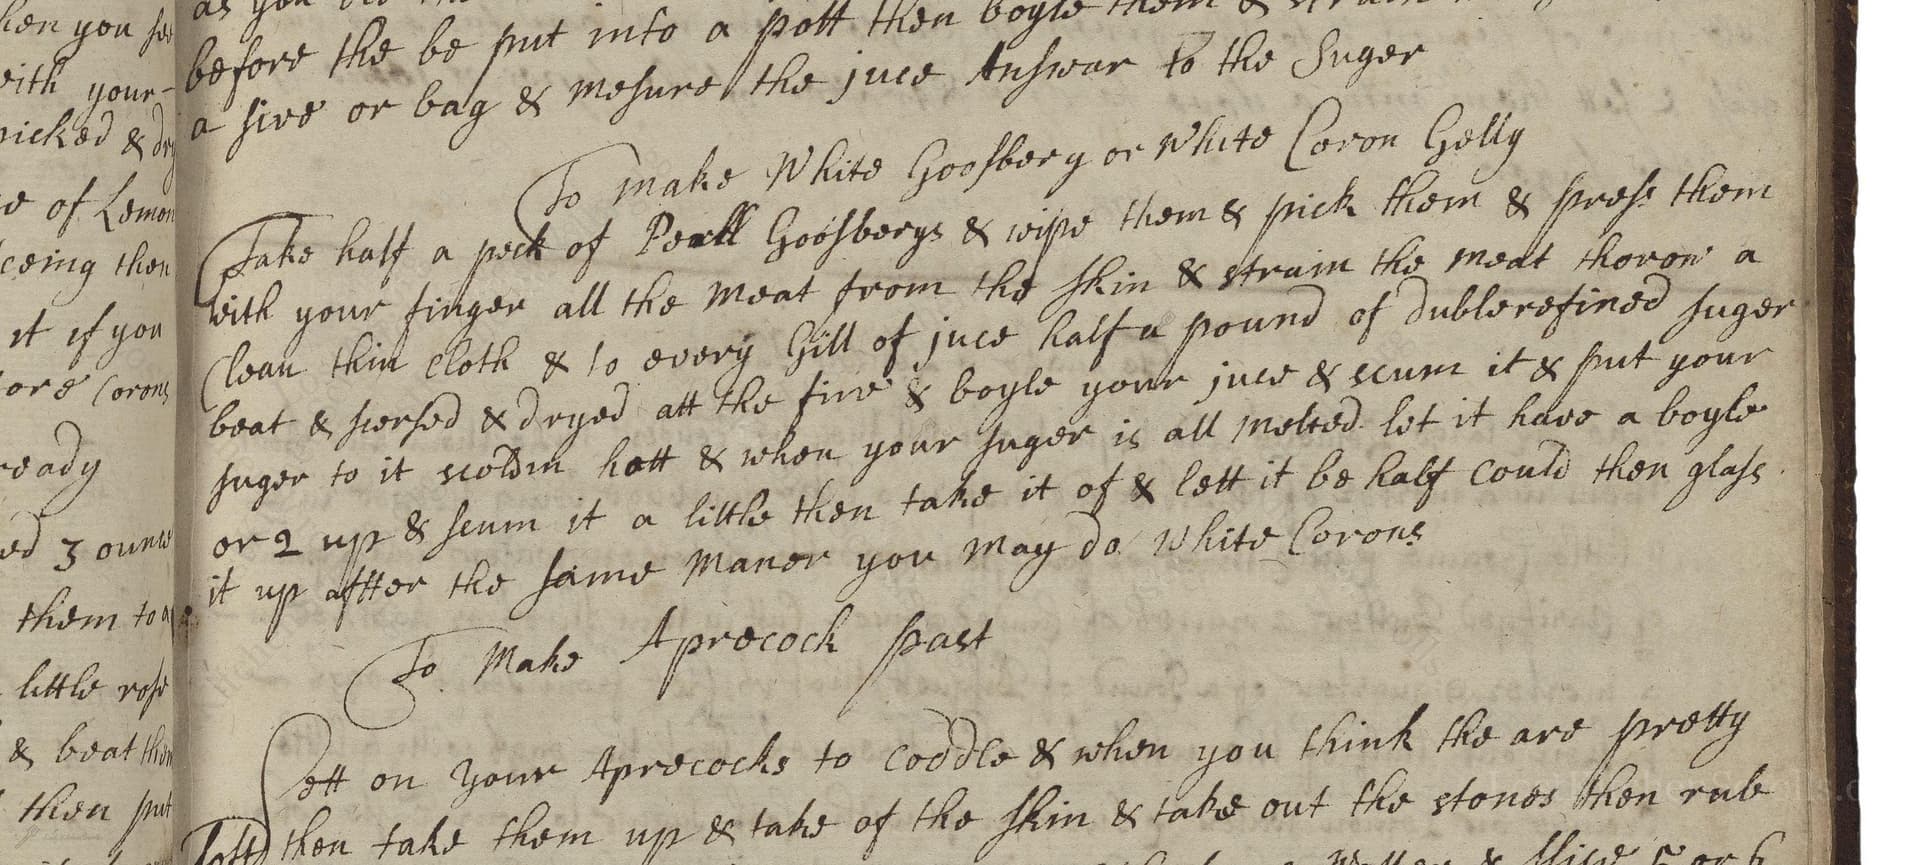 hen you see
with your
picked & dry
of Lemon
ceing then
it if you
Corons
ready
3 ounce
them to a
little rose
& beat then
then put
as you did the
before the be put into a pott then boyle them & strain
a sive or bag & mesure the juce Answar to the Suger
To make White Goosbery or White Coron Gelly
Take half a peck of Pearll Goosberys & wipe them & pick them & press them
with your finger all the meat from the skin & strain the meat thorow a
Clean thin Cloth & to every Gill of juce half a pound of dublerefined suger
beat & sersed & dryed att the fire & boyle your juce & scum it & put your
suger to it scoldin hott & when your suger is all melted let it have a boyle
or 2 up & scum it a little then take it of & lett it be half Could then glass
it up aftter the same maner you may do White Corons
To Make Aprecock past
Sett on your Aprecocks to Coddle & when you think the are pretty
soft then take them up & take of the skin & take out the stones then rub
& slise 5 or 6